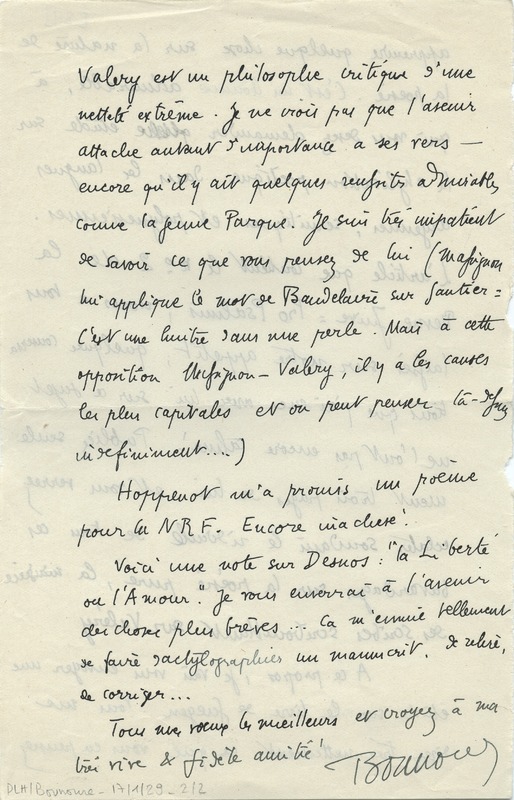 Valery est un philosophe critique d'une
netteté extrême. Je ne crois pas que l'avenir
attache autant d'importance à ses vers —
encore qu'il y ait quelques reussites admirables
comme la Jeune Parque. Je suis très impatient
de savoir ce que vous pensez de lui (Massignon
lui applique le mot de Baudelaire sur Gautier =
c'est une huitre dans une perle. Mais à cette
opposition Massignon – Valery, il y a les causes
les plus capitales et on peut penser là-dessus
indefiniment....)
Hoppenot m'a promis un poème
pour la NRF. Encore inachevé!
Voici une note sur Desnos: "la Liberté
ou l'Amour". Je vous enverrai à l'avenir
des choses plus brèves... Ça m'ennuie tellement
de faire dactylographier un manuscrit, de relire,
de corriger...
Tous mes voeux les meilleurs et croyez à ma
très vive & fidèle amitié!
Bounoure
PLH/Bounoure - 17/1/29 - 2/2